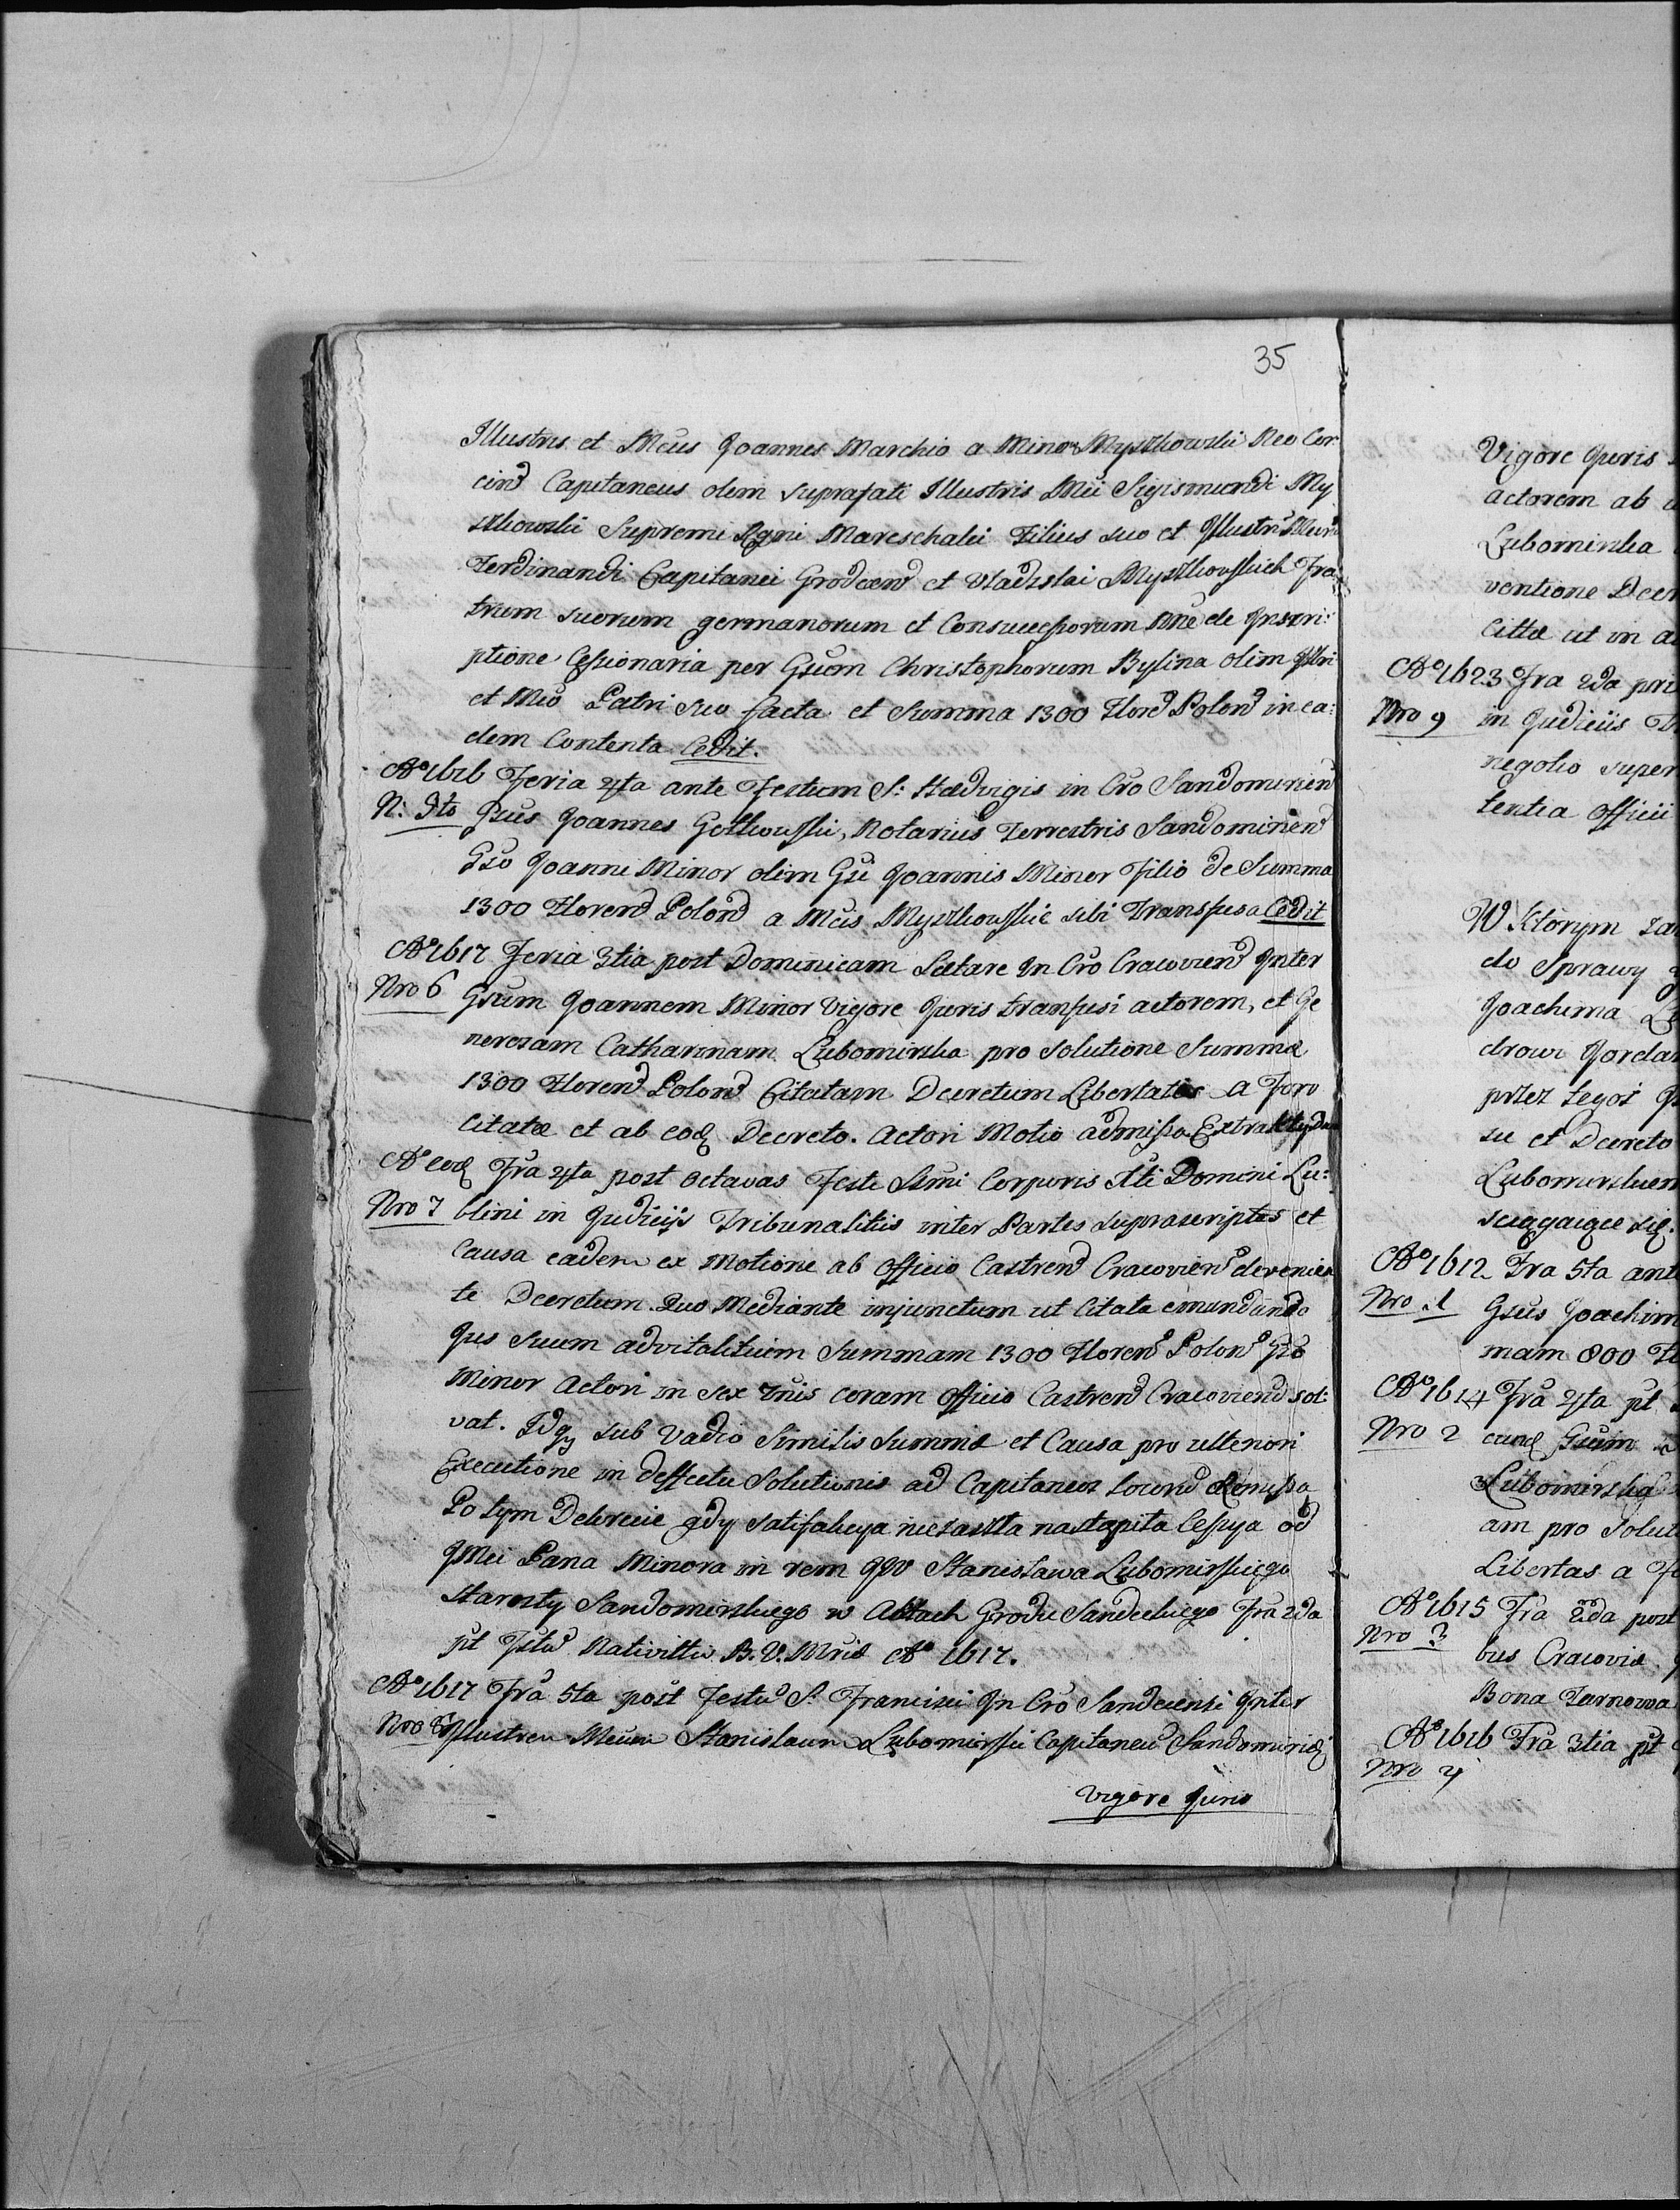 35
Illustris et Mcus Joannes Marchio a Minor Myszkowski Neo Cor:
cinđ Capitaneus olim suprafati Illustris Mci Sigismundi My
szkowski Supremi Rgni Mareschalci Filius suo et Illustr
Ferdinandi Capitanei Grodcenđ et Vladislai Myszkowskich Fra:
trum suorum germanorum et Consuccessorum nne de Inscri:
ptione Cessionaria per Gsum Christophorum Bylina olim Illri
et Mco Patri suo facta et Summa 1300 Florđ Polonđ in ea:
dem Contenta Cedit.
Aº 1616 Feria 4ta ante Festum S: Hædvigis in Cro Sandomirienđ
N: 5to Gsus Joannes Gołkowski, Notarius Terrestris Sandomirienđ
Gso Joanni Minor olim Gsi Joannis Minor Filio de Summa
1300 Florenđ Polonđ a Mcis Myszkowskie sibi Transfusa Cedit
Aº 1617 Feria 3tia post Dominicam Lætare In Cro Cracovienđ Inter
Nro 6 Gsum Joannem Minor vigore Juris transfusi actorem, et Ge
nerosam Catharinam Lubomirska pro solutione Summæ
1300 Florenđ Polonđ Citatam Decretum Libertatis a Foro
Citatæ et ab eođ Decreto Actori Motio admissa
Aº eođ Fra 4ta post octavas Festi Ssmi Corporis Xti Domini Lu:
Nro 7 blini in Judicijs Tribunalitiis inter Partes suprascriptas et
Causa eadem ex Motione ab officio Castrenđ Cracovienđ devenien
te Decretum Quo Mediante injunctum ut Citata emundando
Jus suum advitalitium Summam 1300 Florenđ Polonđ Gso
Minor Actori in sex Tnis coram officio Castrenđ Cracovienđ sol:
vat. Idq sub Vadio Similis Summæ et Causa pro ulteriori
Executione in deffectu Solutionis ad Capitaneos Locorđ Remissa
Po tym Dekrecie gdy satifakcya niezaszła nastąpiła Cessya od
JMci Pana Minora in rem JW Stanisława Lubomirskiego
Starosty Sandomirskiego w Aktach Grodu Sandeckiego Fra 2da
pt Fstu Nativittis B. V. Mriæ Aº 1617.
Aº 1617 Fra 5ta post Festu S. Francisci In Cro Sandecensi Inter
Nro 8 Illustrem Mcum Stanislaum Lubomirski Capitaneu Sandomiriđ
vigore Juris
Vigore Juris
actorem ab
Lubomirska
ventione
Cittæ ut in
Aº 1623 Fra 2da
Nro 9 in Judiciis
negotio super
tentia officii
W Którym
do Sprawy
Joachima
drowi
przez tegoż
su et Decreto
sciągaiące się.
Aº 1612 Fra 5ta ant
Nro 1 Gsus Joachim
mam 800
Aº 1614 Fra 4ta pt
Nro 2 eunđ Gsum
Lubomirska
am pro Solut
Libertas a
Aº 1615 Fra 2da post
Nro 3 bus Cracoviæ
Bona Tarnowa
Aº 1616 Fra 3tia pt
Nro 4